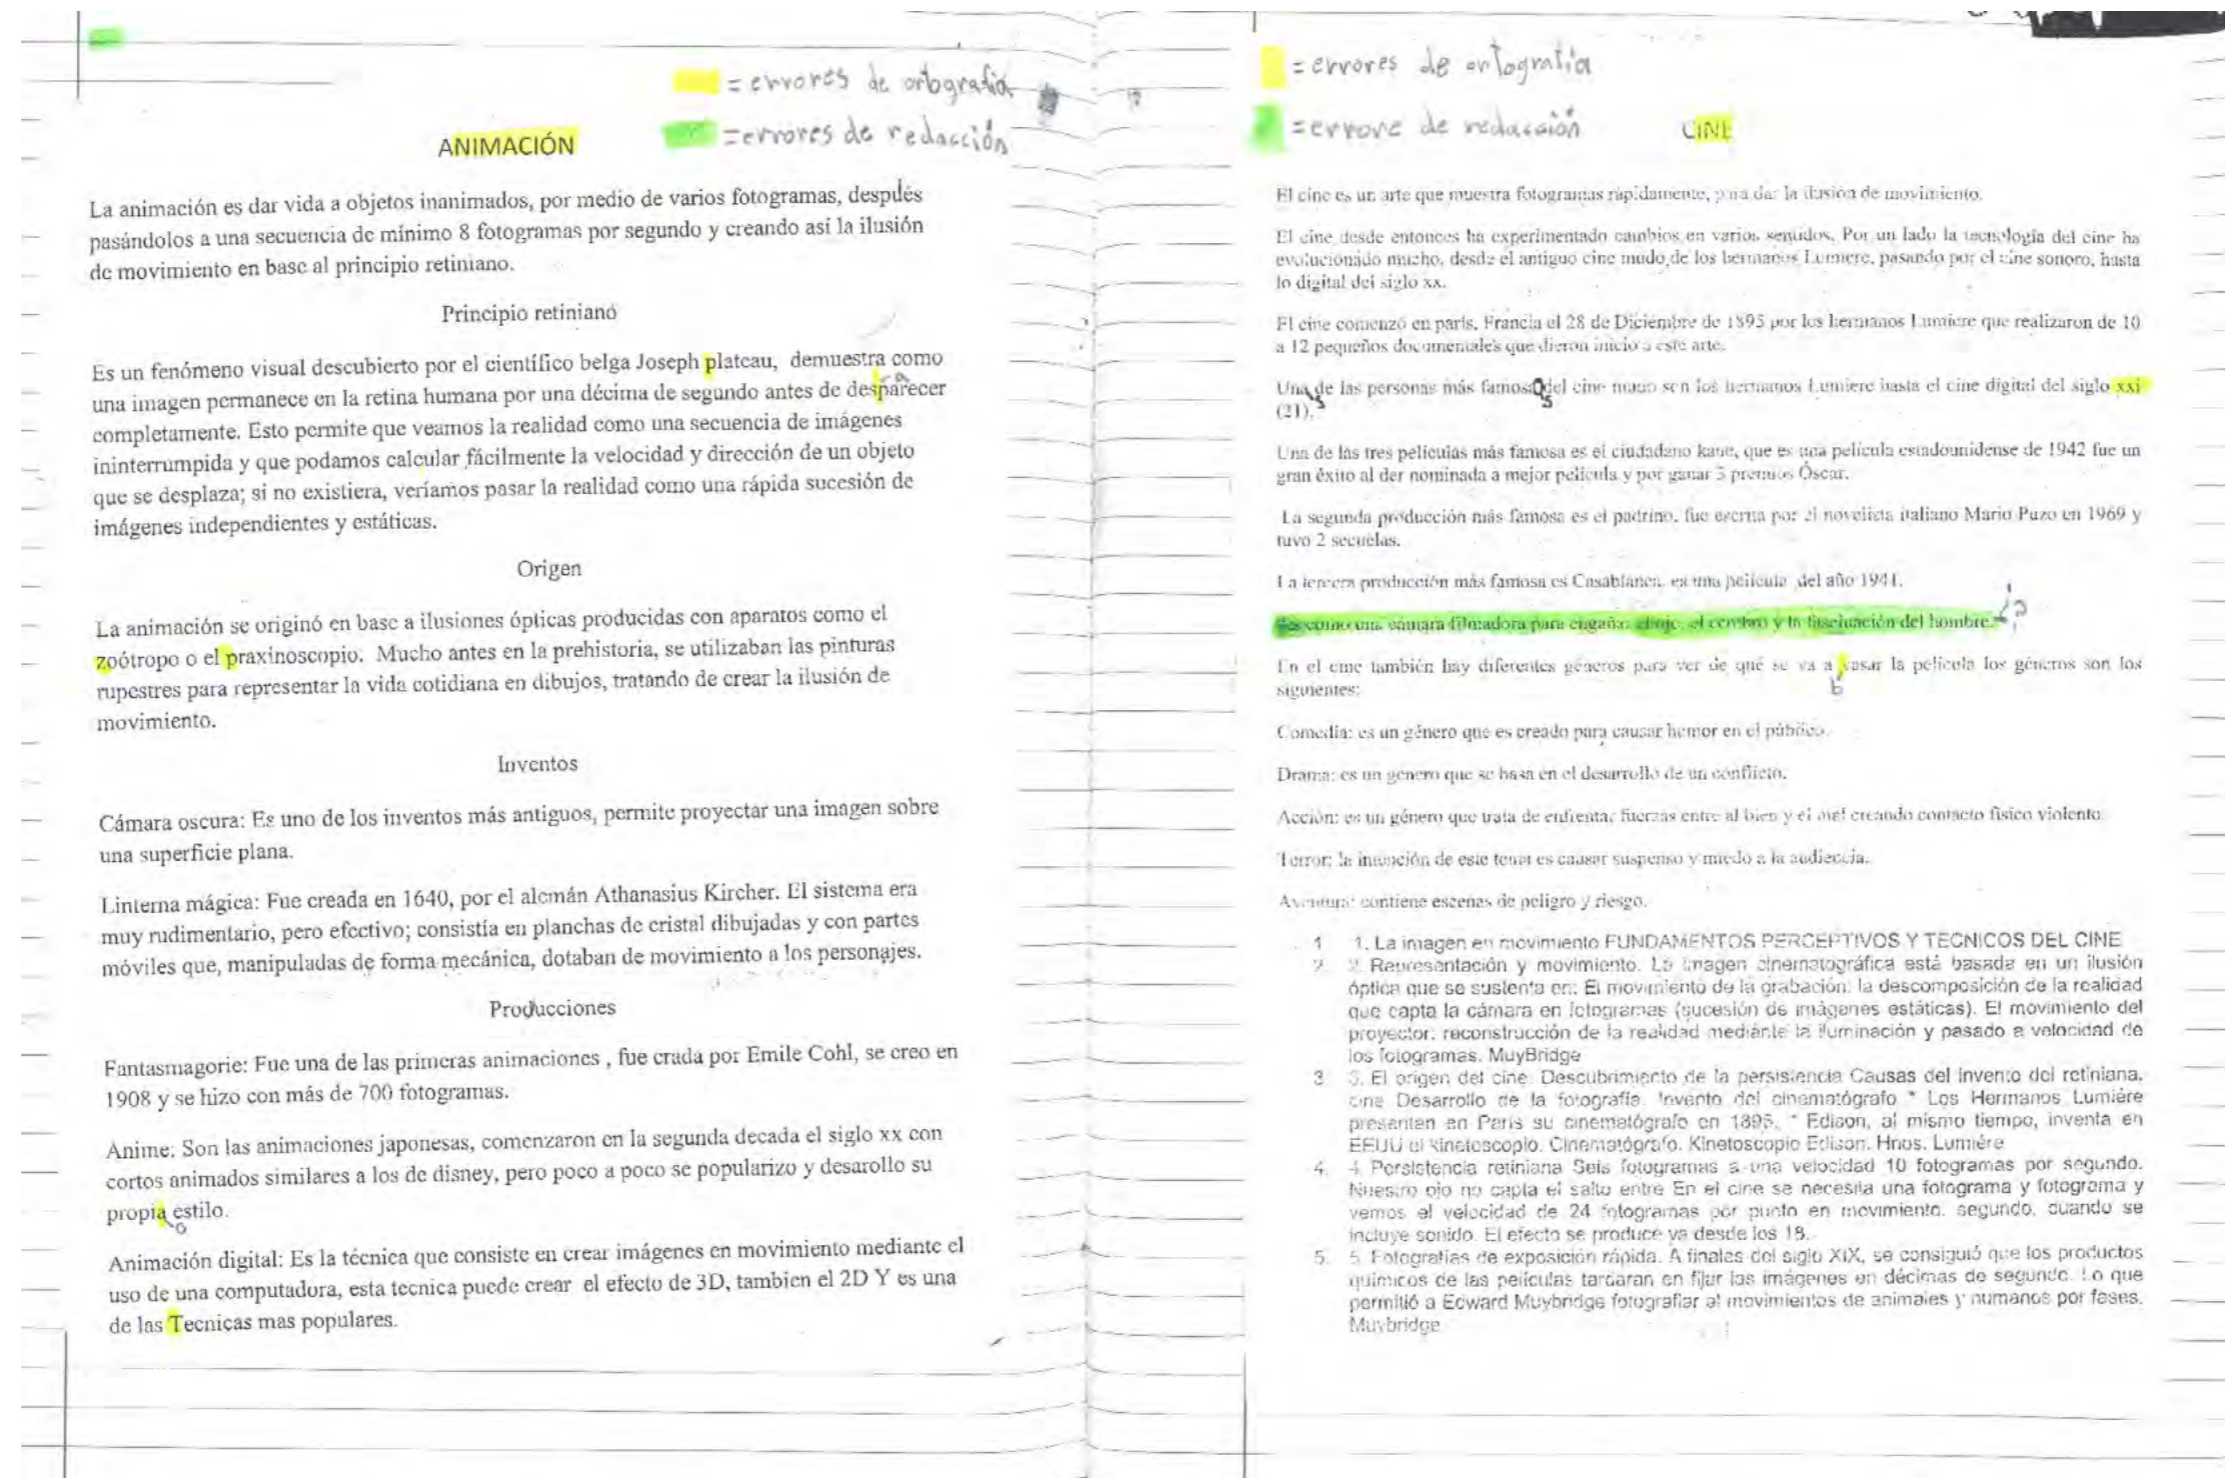 = errores de ortografía
= errores de redacción
ANIMACIÓN
La animación es dar vida a objetos inanimados, por medio de varios fotogramas, después
pasándolos a una secuencia de mínimo 8 fotogramas por segundo y creando así la ilusión
de movimiento en base al principio retiniano.
Principio retiniano
Es un fenómeno visual descubierto por el científico belga Joseph plateau, demuestra como
una imagen permanece en la retina humana por una décima de segundo antes de desparecer
a
completamente. Esto permite que veamos la realidad como una secuencia de imágenes
ininterrumpida y que podamos calcular fácilmente la velocidad y dirección de un objeto
que se desplaza; si no existiera, veríamos pasar la realidad como una rápida sucesión de
imágenes independientes y estáticas.
Origen
La animación se originó en base a ilusiones ópticas producidas con aparatos como el
zoótropo o el praxinoscopio. Mucho antes en la prehistoria, se utilizaban las pinturas
rupestres para representar la vida cotidiana en dibujos, tratando de crear la ilusión de
movimiento.
Inventos
Cámara oscura: Es uno de los inventos más antiguos, permite proyectar una imagen sobre
una superficie plana.
Linterna mágica: Fue creada en 1640, por el alemán Athanasius Kircher. El sistema era
muy rudimentario, pero efectivo; consistía en planchas de cristal dibujadas y con partes
móviles que, manipuladas de forma mecánica, dotaban de movimiento a los personajes.
Producciones
Fantasmagorie: Fue una de las primeras animaciones , fue crada por Emile Cohl, se creo en
1908 y se hizo con más de 700 fotogramas.
Anime: Son las animaciones japonesas, comenzaron en la segunda decada el siglo xx con
cortos animados similares a los de disney, pero poco a poco se popularizo y desarollo su
propia estilo.
o
Animación digital: Es la técnica que consiste en crear imágenes en movimiento mediante el
uso de una computadora, esta tecnica puede crear el efecto de 3D, tambien el 2D Y es una
de las Tecnicas mas populares.
= errores de ortografía
= errore de redacción
CINE
El cine es un arte que muestra fotogramas rápidamente, para dar la ilusión de movimiento.
El cine desde entonces ha experimentado cambios en varios sentidos. Por un lado la tecnología del cine ha
evolucionado mucho, desde el antiguo cine mudo de los hermanos Lumiere, pasando por el cine sonoro, hasta
lo digital del siglo xx.
El cine comenzó en parís, Francia el 28 de Diciembre de 1895 por los hermanos Lumiere que realizaron de 10
a 12 pequeños documentales que dieron inicio a este arte.
Una de las personas más famosa del cine mudo son los hermanos Lumiere hasta el cine digital del siglo xxi
s s
(21).
Una de las tres películas más famosa es el ciudadano kane, que es una película estadounidense de 1942 fue un
gran éxito al der nominada a mejor película y por ganar 5 premios Óscar.
La segunda producción más famosa es el padrino, fue escrita por el novelista italiano Mario Puzo en 1969 y
tuvo 2 secuelas.
La tercera producción más famosa es Casablanca, es una película del año 1941.
como una cámara filmadora para engañar el ojo, el cerebro y la fascinación del hombre. ¿?
En el cine también hay diferentes géneros para ver de qué se va a vasar la película los géneros son los
b
siguientes:
Comedia: es un género que es creado para causar humor en el público.
Drama: es un género que se basa en el desarrollo de un conflicto.
Acción: es un género que trata de enfrentar fuerzas entre al bien y el mal creando contacto físico violento.
Terror: la intención de este es causar suspenso y miedo a la audiencia.
Aventura: contiene escenas de peligro y riesgo.
1 1. La imagen en movimiento FUNDAMENTOS PERCEPTIVOS Y TECNICOS DEL CINE
2 2. Representación y movimiento. La imagen cinematográfica está basada en un ilusión
óptica que se sustenta en: El movimiento de la grabación: la descomposición de la realidad
que capta la cámara en fotogramas (sucesión de imágenes estáticas). El movimiento del
proyector: reconstrucción de la realidad mediante la iluminación y pasado a velocidad de
los fotogramas. MuyBridge
3 3. El origen del cine. Descubrimiento de la persistencia Causas del invento del retiniana.
cine Desarrollo de la fotografía. Invento del cinematógrafo * Los Hermanos Lumière
presentan en París su cinematógrafo en 1895. * Edison, al mismo tiempo, inventa en
EEUU el kinetoscopio. Cinematógrafo. Kinetoscopio Edison. Hnos. Lumière
4. 4. Persistencia retiniana Seis fotogramas a una velocidad 10 fotogramas por segundo.
Nuestro ojo no capta el salto entre En el cine se necesita una fotograma y fotograma y
vemos el velocidad de 24 fotogramas por punto en movimiento. segundo, cuando se
incluye sonido. El efecto se produce ya desde los 18.
5. 5. Fotografías de exposición rápida. A finales del siglo XIX, se consiguió que los productos
químicos de las películas tardaran en fijar las imágenes en décimas de segundo. Lo que
permitió a Edward Muybridge fotografiar al movimientos de animales y humanos por fases.
Muybridge